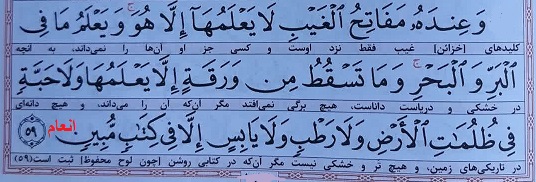 وَعِندَهُۥ مَفَاتِحُ ٱلْغَيْبِ لَا يَعْلَمُهَآ إِلَّا هُوَ ۚ وَيَعْلَمُ مَا فِى
کلیدهای [خزائن] غیب فقط نزد اوست و کسی جز او آن‌ها را نمی‌داند، به آنچه
ٱلْبَرِّ وَٱلْبَحْرِ ۚ وَمَا تَسْقُطُ مِن وَرَقَةٍ إِلَّا يَعْلَمُهَا وَلَا حَبَّةٍ
در خشکی و دریاست داناست، هیچ برگی نمی‌افتد مگر آن‌که آن را می‌داند، و هیچ دانه‌ای
فِى ظُلُمَٰتِ ٱلْأَرْضِ وَلَا رَطْبٍ وَلَا يَابِسٍ إِلَّا فِى كِتَٰبٍ مُّبِينٍ ۵۹ انعام
در تاریکی‌های زمین، و هیچ تر و خشکی نیست مگر آن‌که در کتابی روشن [چون لوح محفوظ] ثبت است (۵۹)